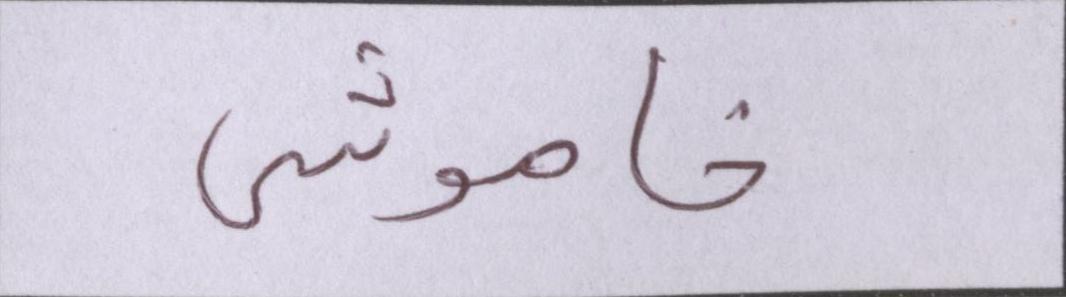 خاموش